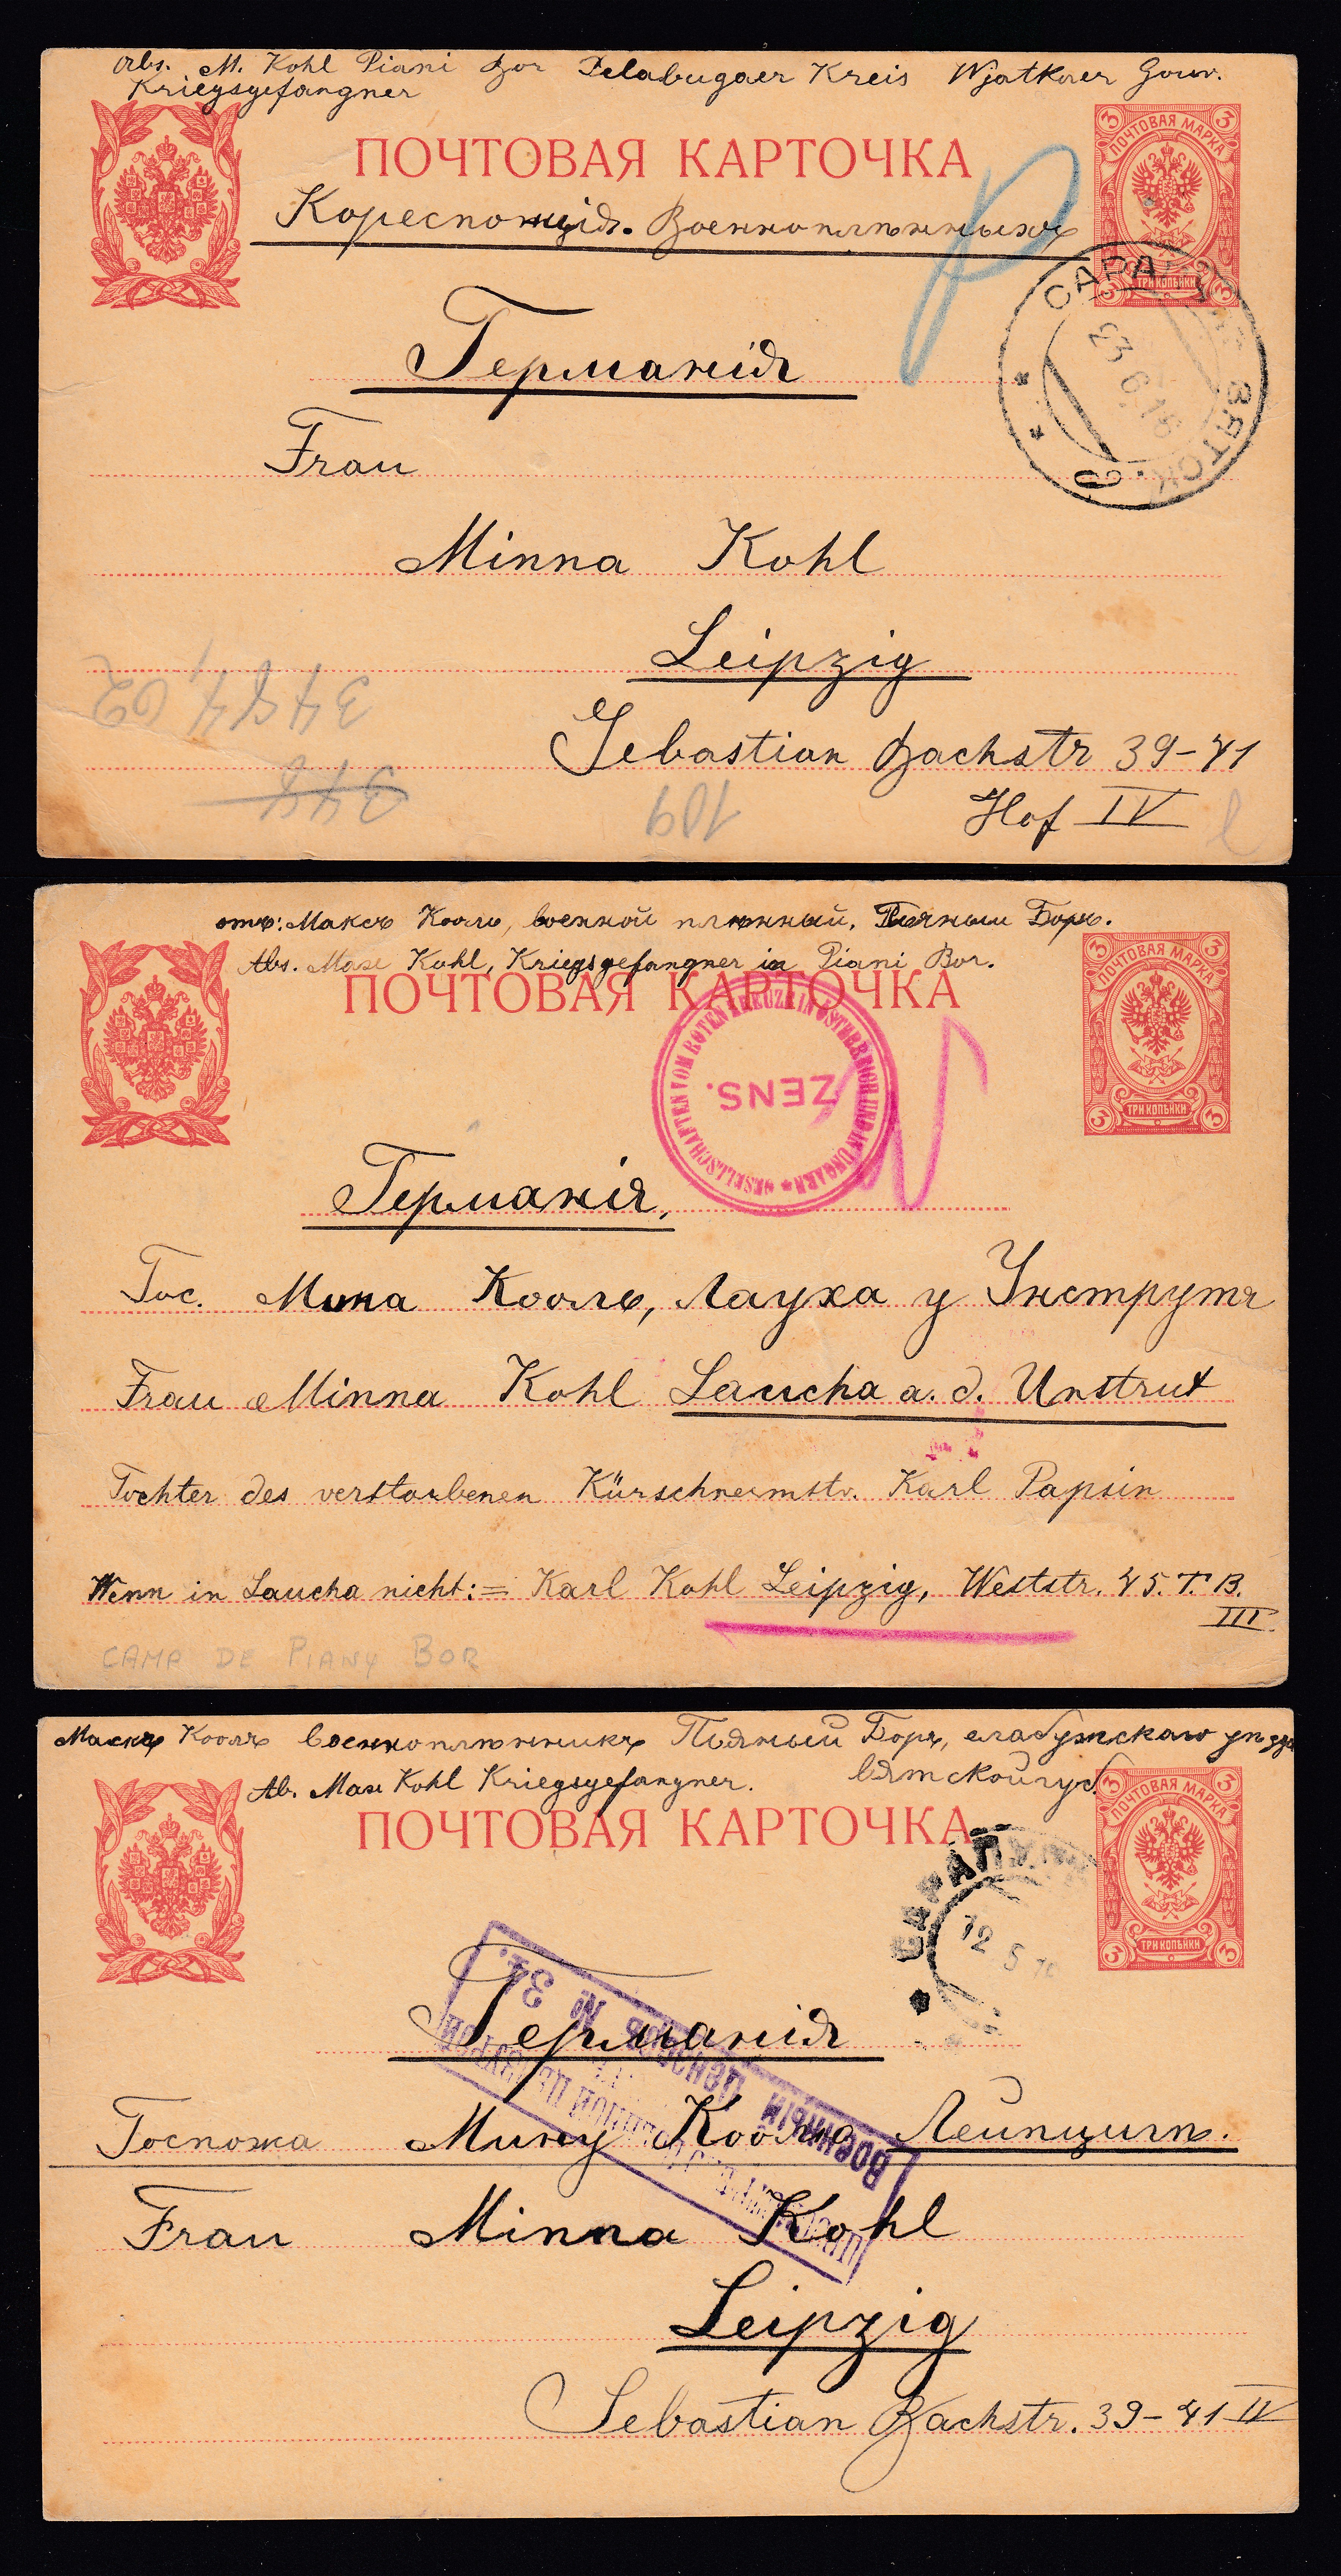 Abs. M. Kohl Piani Bor Jelabugaer Kreis Wjatkaer Gouv.
Kriegsgefangner
ПОЧТОВАЯ КАРТОЧКА
3 ПОЧТОВАЯ МАРКА 3
3 ТРИ КОПѢЙКИ 3
Военноплѣнныхъ
САРАПУЛЪ ВЯТСК.
23 6.16
Германія
Frau
Minna Kohl
Leipzig
Sebastian Bachstr 39-41
Hof IV
3484,02
348
109
отъ: Максъ Кооль, военной плѣнный, Пьяный Боръ.
Abs. Max Kohl, Kriegsgefangner in Piani Bor.
ПОЧТОВАЯ КАРТОЧКА
3 ПОЧТОВАЯ МАРКА 3
3 ТРИ КОПѢЙКИ 3
GESELLSCHAFTEN VOM ROTEN KREUZE IN ÖSTERREICH UND IN UNGARN
ZENS.
Германія,
Гос. Мина Кооль, Лауха у Унструтъ
Frau Minna Kohl Laucha a. d. Unstrut
Tochter des verstorbenen Kürschnermstr. Karl Papsin
Wenn in Laucha nicht:= Karl Kohl Leipzig, Weststr. 45. T. B.
III
CAMP DE PIANY BOR
Максъ Кооль военноплѣнникъ Пьяный Боръ, елабужскаго уѣзда
Ab. Max Kohl Kriegsgefangner. вятской губ.
ПОЧТОВАЯ КАРТОЧКА
3 ПОЧТОВАЯ МАРКА 3
3 ТРИ КОПѢЙКИ 3
САРАПУЛ
12 5
Германія
Военный Цензоръ № 34.
Госпожа Мину Кооль Лейпцигъ.
Frau Minna Kohl
Leipzig
Sebastian Bachstr. 39-41 IV